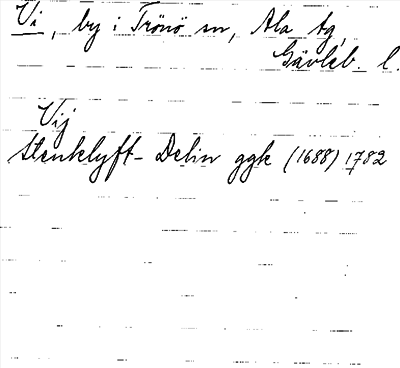 Vi, by i Trönö sn, Ala tg,
Gävleb. l.
Vij
Stenklyft- Delin ggk (1688) 1782